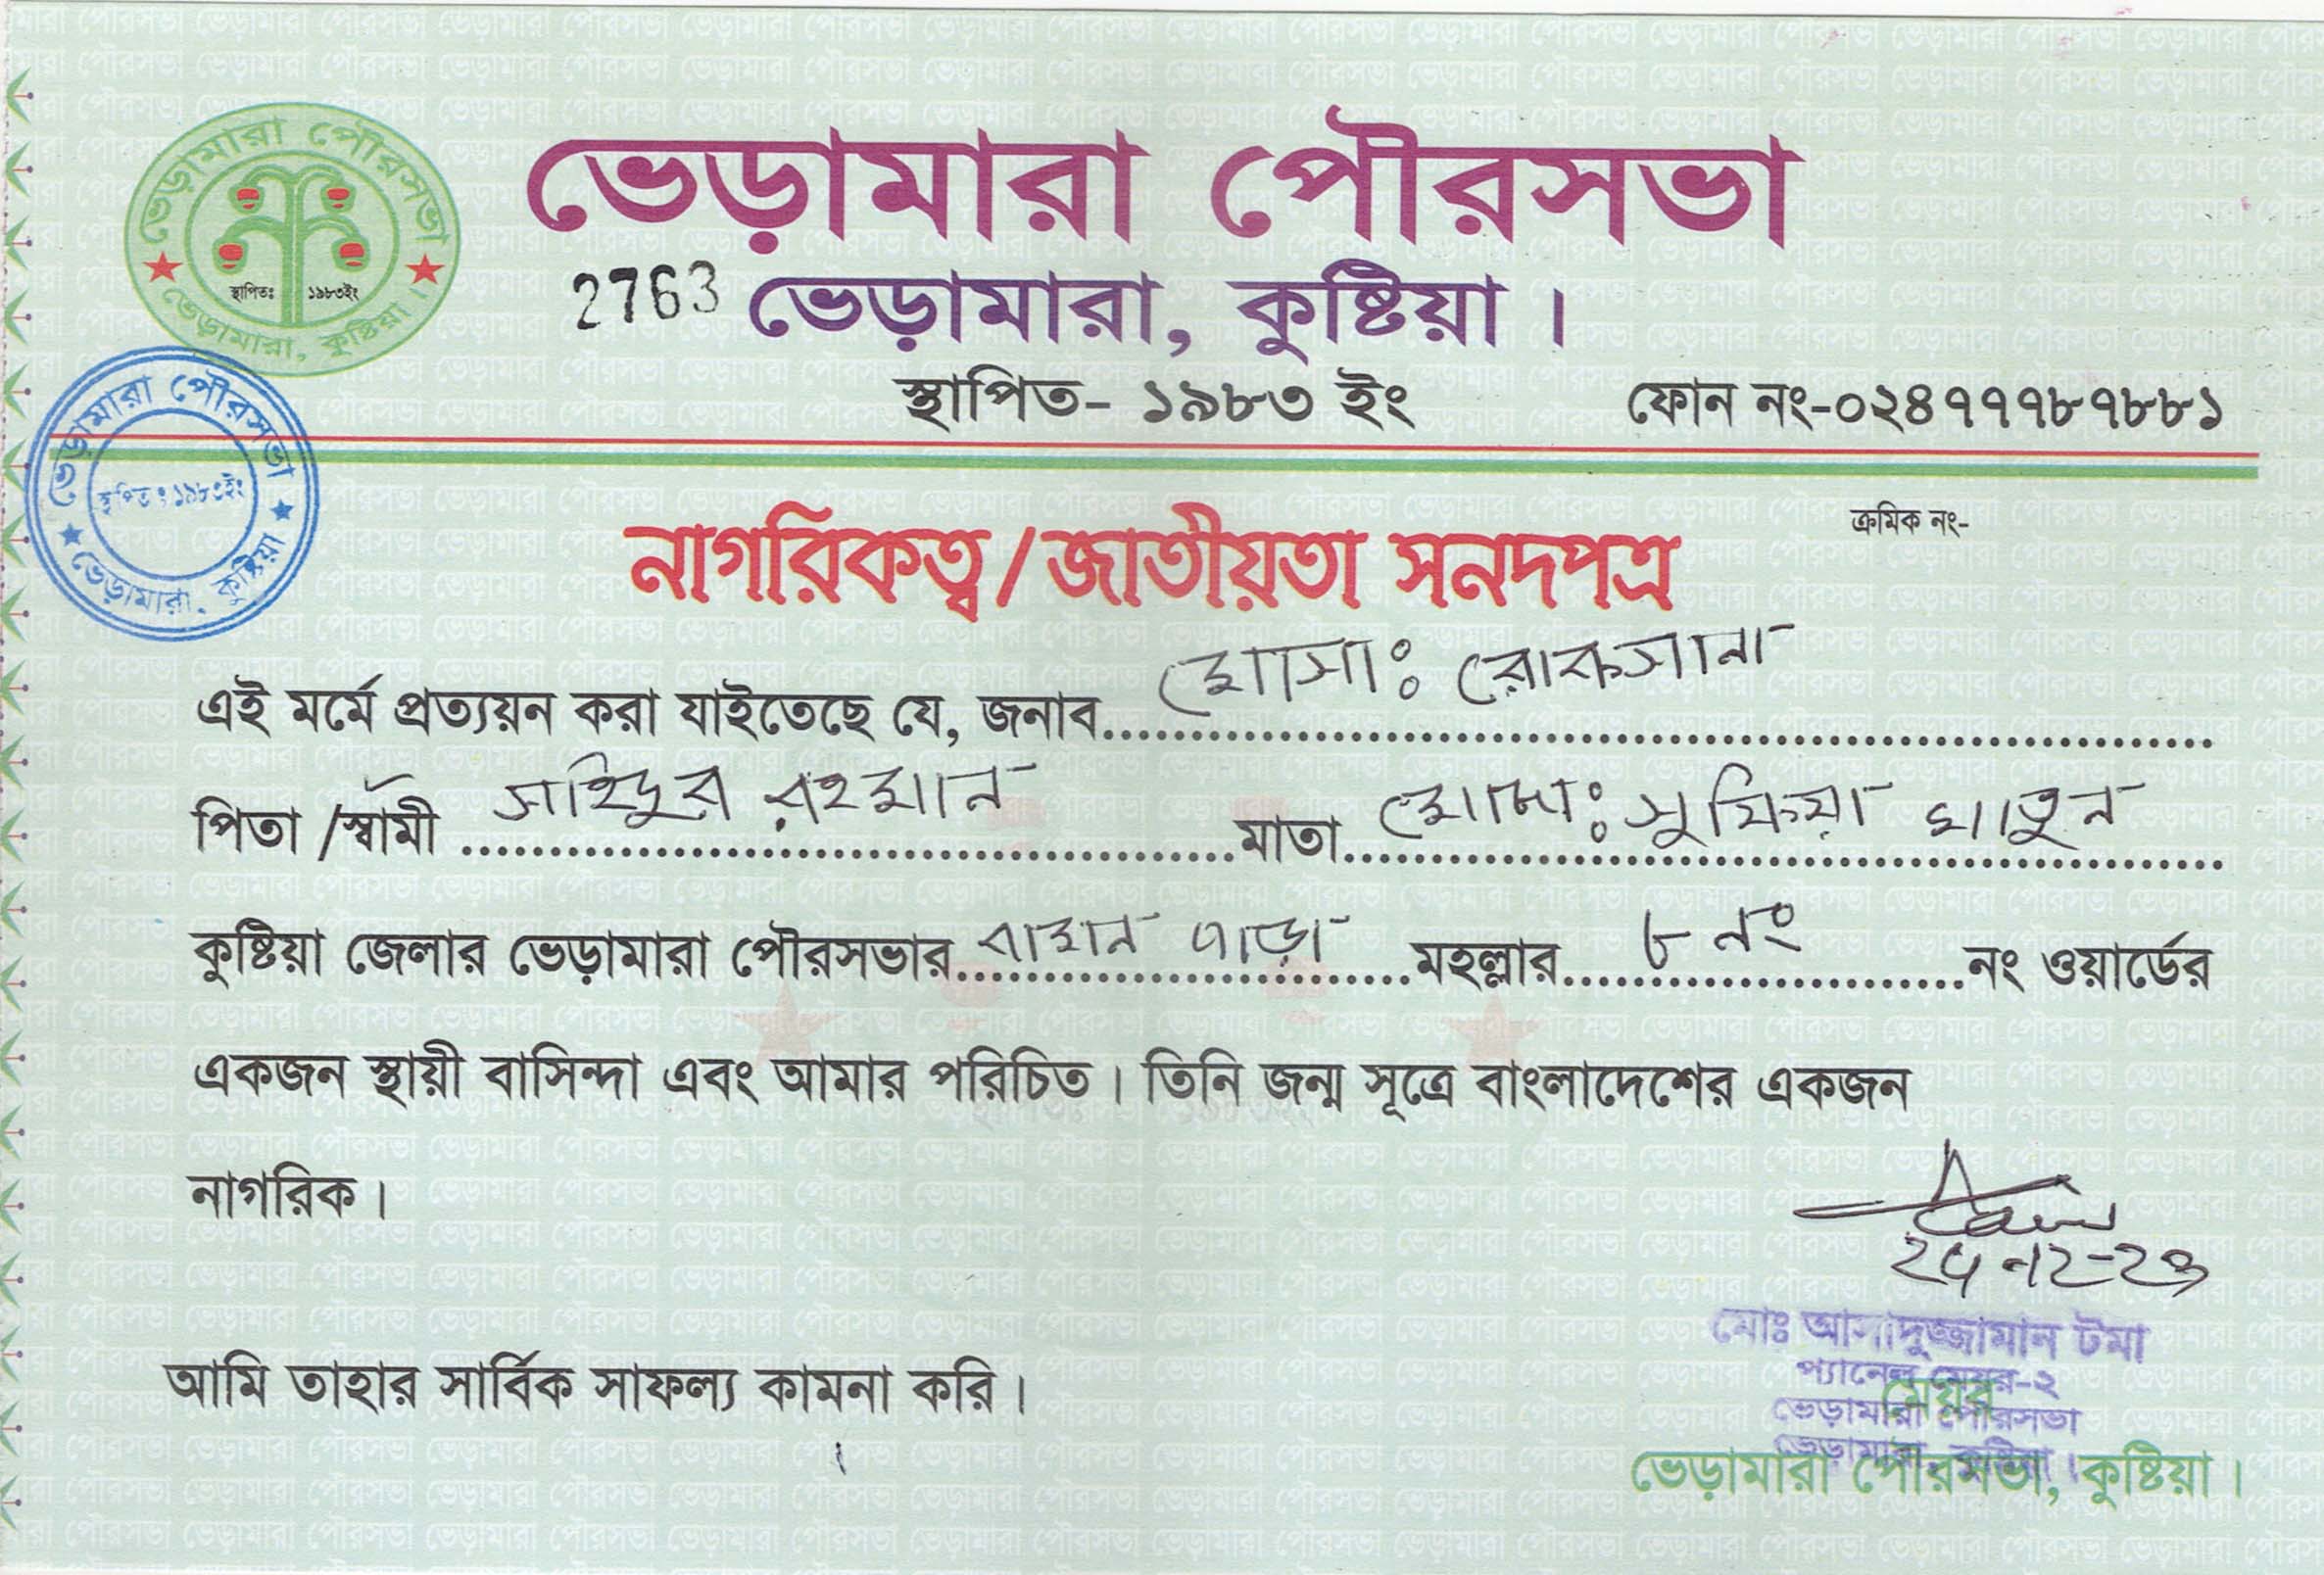 ভেড়ামারা পৌরসভা
স্থাপিতঃ ১৯৮৩ইং
ভেড়ামারা, কুষ্টিয়া।
ভেড়ামারা পৌরসভা
2763 ভেড়ামারা, কুষ্টিয়া।
স্থাপিত- ১৯৮৩ ইং ফোন নং-০২৪৭৭৭৮৭৮৮১
ভেড়ামারা পৌরসভা
স্থাপিতঃ১৯৮৩ইং
ভেড়ামারা, কুষ্টিয়া
ক্রমিক নং-
নাগরিকত্ব/জাতীয়তা সনদপত্র
এই মর্মে প্রত্যয়ন করা যাইতেছে যে, জনাব মোসাঃ রোকসানা
পিতা /স্বামী সাইদুর রহমান মাতা মোছাঃ সুফিয়া খাতুন
কুষ্টিয়া জেলার ভেড়ামারা পৌরসভার বামন পাড়া মহল্লার ৮ নং নং ওয়ার্ডের
একজন স্থায়ী বাসিন্দা এবং আমার পরিচিত। তিনি জন্ম সূত্রে বাংলাদেশের একজন
নাগরিক।
আমি তাহার সার্বিক সাফল্য কামনা করি।
মোঃ আসাদুজ্জামান টমা
প্যানেল মেয়র-২
মেয়র
ভেড়ামারা পৌরসভা
ভেড়ামারা, কুষ্টিয়া।
ভেড়ামারা পৌরসভা, কুষ্টিয়া।